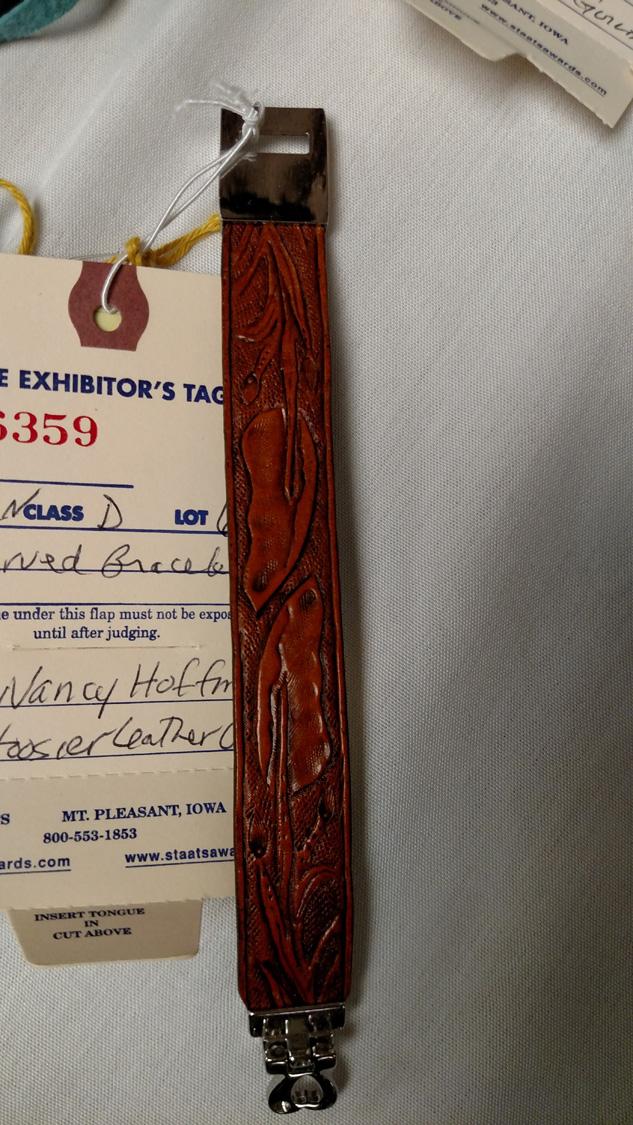 MT. PLEASANT, IOWA
ABOVE
www.staatsawards.com
E EXHIBITOR'S TAG
6359
N CLASS D LOT
rved Bracele
e under this flap must not be expos
until after judging.
Nancy Hoffm
Hoosier Leather
S MT. PLEASANT, IOWA
800-553-1853
ards.com www.staatsawa
INSERT TONGUE
IN
CUT ABOVE